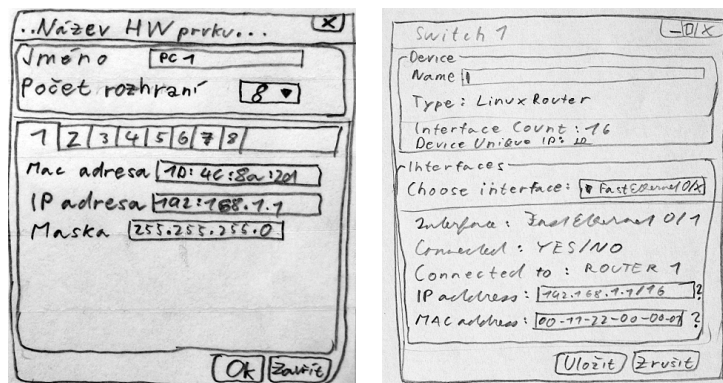 ..Název HW prvku... X
Jméno PC 1
Počet rozhraní 8
1 2 3 4 5 6 7 8
Mac adresa 1D:4C:8a:2d
IP adresa 192:168.1.1
Maska 255.255.255.0
Ok Zavřít
Switch 1 X
Device
Name
Type: Linux Router
Interface Count: 16
Device Unique ID: ID
Interfaces
Choose interface: FastEthernet 0/X
Interface: FastEthernet 0/1
Connected: YES/NO
Connected to: ROUTER 1
IP address: 192.168.1.1/16 ?
MAC address: 00-11-22-00-00-01 ?
Uložit Zrušit